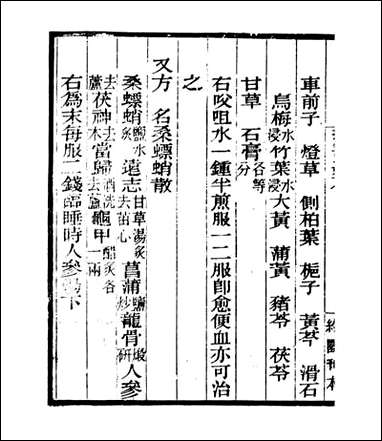 車前子 燈草 側柏葉 梔子 黃芩 滑石
烏梅水浸竹葉水浸大黃 蒲黃 豬苓 茯苓
甘草 石膏各等分
右㕮咀水一鍾半煎服一二服卽愈便血亦可治
之
又方 名桑螵蛸散
桑螵蛸鹽水炙遠志甘草湯炙去苗心菖蒲鹽炒龍骨煅研人參
去蘆茯神去木當歸酒洗去蘆龜甲醋炙各一兩
右爲末每服二錢臨睡時人參湯下